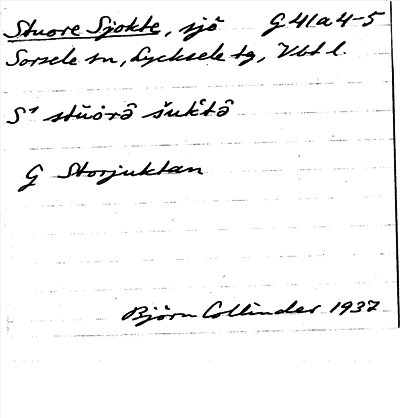 Stuore Sjokte, sjö G 41a 4-5
Sorsele sn, Lycksele tg, Vbt l.
S¹ stūȯrâ šuk̄tâ
G Storjuktan
Björn Collinder 1937